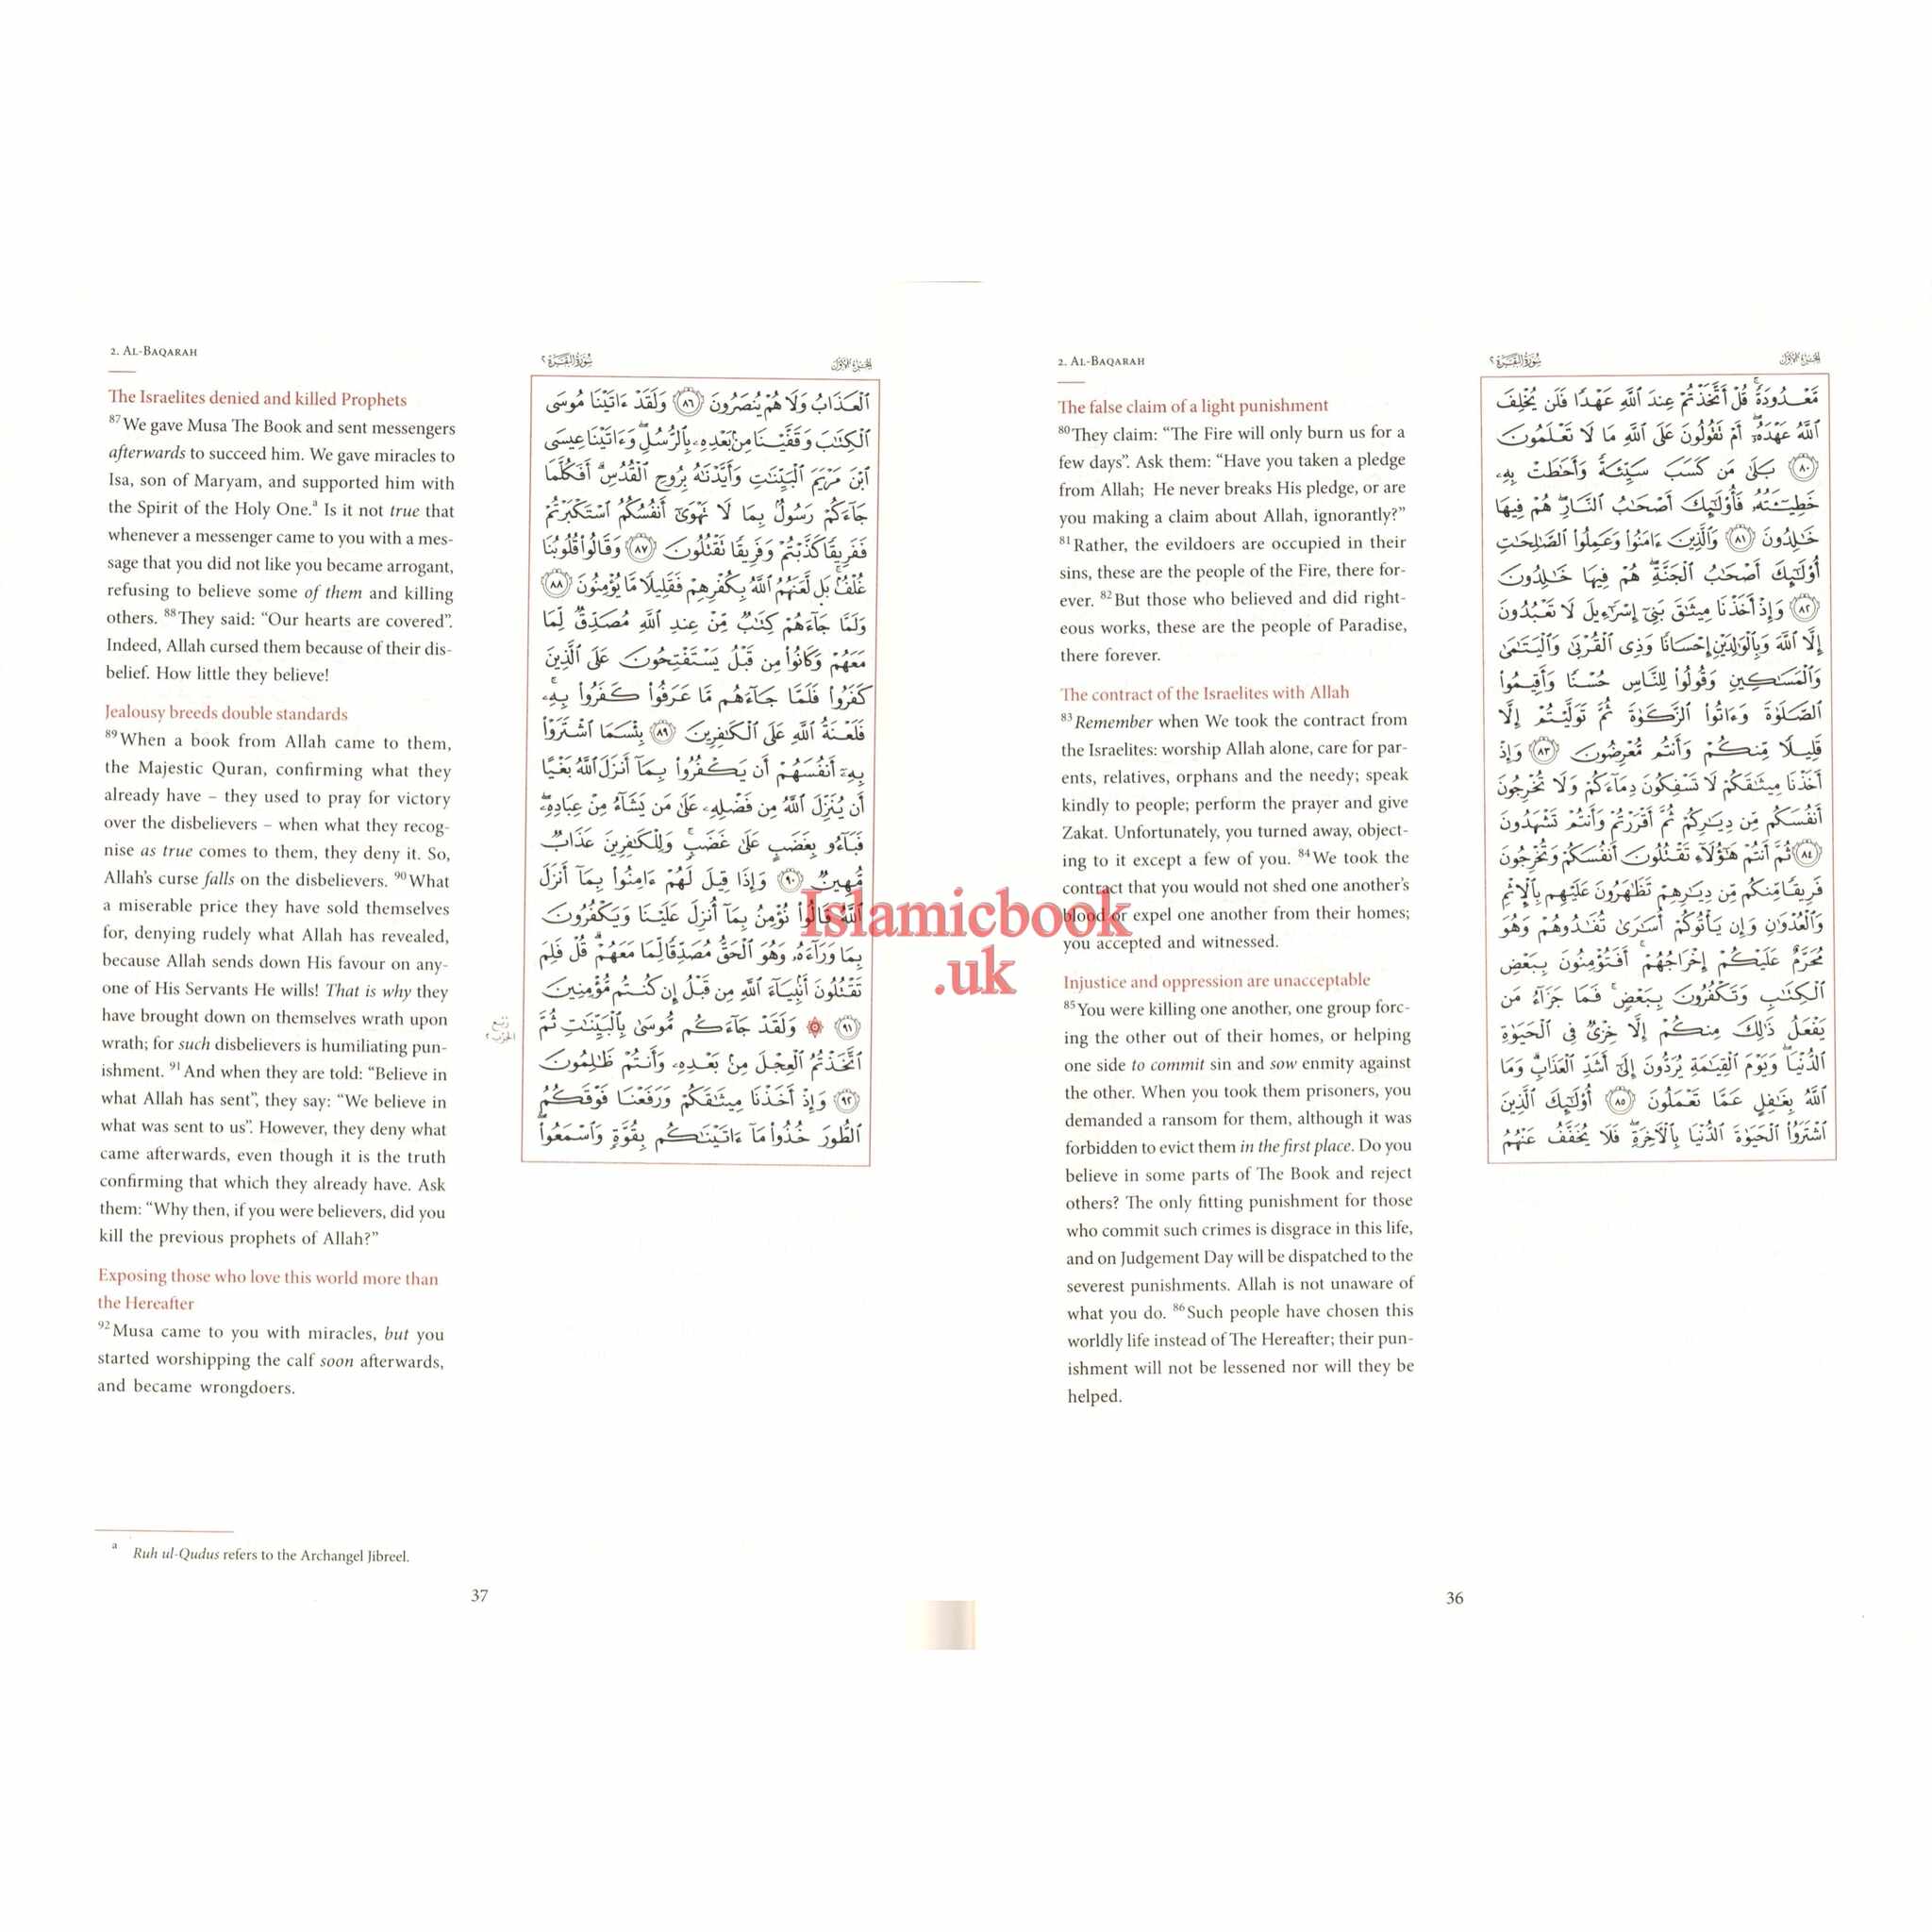 2. AL-BAQARAH
The false claim of a light punishment
80They claim: “The Fire will only burn us for a
few days”. Ask them: “Have you taken a pledge
from Allah; He never breaks His pledge, or are
you making a claim about Allah, ignorantly?”
81Rather, the evildoers are occupied in their
sins, these are the people of the Fire, there for-
ever. 82But those who believed and did right-
eous works, these are the people of Paradise,
there forever.
The contract of the Israelites with Allah
83Remember when We took the contract from
the Israelites: worship Allah alone, care for par-
ents, relatives, orphans and the needy; speak
kindly to people; perform the prayer and give
Zakat. Unfortunately, you turned away, object-
ing to it except a few of you. 84We took the
contract that you would not shed one another’s
blood or expel one another from their homes;
you accepted and witnessed.
Injustice and oppression are unacceptable
85You were killing one another, one group forc-
ing the other out of their homes, or helping
one side to commit sin and sow enmity against
the other. When you took them prisoners, you
demanded a ransom for them, although it was
forbidden to evict them in the first place. Do you
believe in some parts of The Book and reject
others? The only fitting punishment for those
who commit such crimes is disgrace in this life,
and on Judgement Day will be dispatched to the
severest punishments. Allah is not unaware of
what you do. 86Such people have chosen this
worldly life instead of The Hereafter; their pun-
ishment will not be lessened nor will they be
helped.
الجزء الأول سورة البقرة ٢
مَّعْدُودَةً ۚ قُلْ أَتَّخَذْتُمْ عِندَ ٱللَّهِ عَهْدًا فَلَن يُخْلِفَ
ٱللَّهُ عَهْدَهُۥٓ ۖ أَمْ تَقُولُونَ عَلَى ٱللَّهِ مَا لَا تَعْلَمُونَ
٨٠ بَلَىٰ مَن كَسَبَ سَيِّئَةً وَأَحَٰطَتْ بِهِۦ
خَطِيٓـَٔتُهُۥ فَأُو۟لَٰٓئِكَ أَصْحَٰبُ ٱلنَّارِ ۖ هُمْ فِيهَا
خَٰلِدُونَ ٨١ وَٱلَّذِينَ ءَامَنُوا۟ وَعَمِلُوا۟ ٱلصَّٰلِحَٰتِ
أُو۟لَٰٓئِكَ أَصْحَٰبُ ٱلْجَنَّةِ ۖ هُمْ فِيهَا خَٰلِدُونَ
٨٢ وَإِذْ أَخَذْنَا مِيثَٰقَ بَنِىٓ إِسْرَٰٓءِيلَ لَا تَعْبُدُونَ
إِلَّا ٱللَّهَ وَبِٱلْوَٰلِدَيْنِ إِحْسَانًا وَذِى ٱلْقُرْبَىٰ وَٱلْيَتَٰمَىٰ
وَٱلْمَسَٰكِينِ وَقُولُوا۟ لِلنَّاسِ حُسْنًا وَأَقِيمُوا۟
ٱلصَّلَوٰةَ وَءَاتُوا۟ ٱلزَّكَوٰةَ ثُمَّ تَوَلَّيْتُمْ إِلَّا
قَلِيلًا مِّنكُمْ وَأَنتُم مُّعْرِضُونَ ٨٣ وَإِذْ
أَخَذْنَا مِيثَٰقَكُمْ لَا تَسْفِكُونَ دِمَآءَكُمْ وَلَا تُخْرِجُونَ
أَنفُسَكُم مِّن دِيَٰرِكُمْ ثُمَّ أَقْرَرْتُمْ وَأَنتُمْ تَشْهَدُونَ
٨٤ ثُمَّ أَنتُمْ هَٰٓؤُلَآءِ تَقْتُلُونَ أَنفُسَكُمْ وَتُخْرِجُونَ
فَرِيقًا مِّنكُم مِّن دِيَٰرِهِمْ تَظَٰهَرُونَ عَلَيْهِم بِٱلْإِثْمِ
وَٱلْعُدْوَٰنِ وَإِن يَأْتُوكُمْ أُسَٰرَىٰ تُفَٰدُوهُمْ وَهُوَ
مُحَرَّمٌ عَلَيْكُمْ إِخْرَاجُهُمْ ۚ أَفَتُؤْمِنُونَ بِبَعْضِ
ٱلْكِتَٰبِ وَتَكْفُرُونَ بِبَعْضٍ ۚ فَمَا جَزَآءُ مَن
يَفْعَلُ ذَٰلِكَ مِنكُمْ إِلَّا خِزْىٌ فِى ٱلْحَيَوٰةِ
ٱلدُّنْيَا ۖ وَيَوْمَ ٱلْقِيَٰمَةِ يُرَدُّونَ إِلَىٰٓ أَشَدِّ ٱلْعَذَابِ ۗ وَمَا
ٱللَّهُ بِغَٰفِلٍ عَمَّا تَعْمَلُونَ ٨٥ أُو۟لَٰٓئِكَ ٱلَّذِينَ
ٱشْتَرَوُا۟ ٱلْحَيَوٰةَ ٱلدُّنْيَا بِٱلْـَٔاخِرَةِ ۖ فَلَا يُخَفَّفُ عَنْهُمُ
36
2. AL-BAQARAH
The Israelites denied and killed Prophets
87We gave Musa The Book and sent messengers
afterwards to succeed him. We gave miracles to
Isa, son of Maryam, and supported him with
the Spirit of the Holy One.a Is it not true that
whenever a messenger came to you with a mes-
sage that you did not like you became arrogant,
refusing to believe some of them and killing
others. 88They said: “Our hearts are covered”.
Indeed, Allah cursed them because of their dis-
belief. How little they believe!
Jealousy breeds double standards
89When a book from Allah came to them,
the Majestic Quran, confirming what they
already have – they used to pray for victory
over the disbelievers – when what they recog-
nise as true comes to them, they deny it. So,
Allah’s curse falls on the disbelievers. 90What
a miserable price they have sold themselves
for, denying rudely what Allah has revealed,
because Allah sends down His favour on any-
one of His Servants He wills! That is why they
have brought down on themselves wrath upon
wrath; for such disbelievers is humiliating pun-
ishment. 91And when they are told: “Believe in
what Allah has sent”, they say: “We believe in
what was sent to us”. However, they deny what
came afterwards, even though it is the truth
confirming that which they already have. Ask
them: “Why then, if you were believers, did you
kill the previous prophets of Allah?”
Exposing those who love this world more than
the Hereafter
92Musa came to you with miracles, but you
started worshipping the calf soon afterwards,
and became wrongdoers.
الجزء الأول سورة البقرة ٢
ٱلْعَذَابُ وَلَا هُمْ يُنصَرُونَ ٨٦ وَلَقَدْ ءَاتَيْنَا مُوسَى
ٱلْكِتَٰبَ وَقَفَّيْنَا مِنۢ بَعْدِهِۦ بِٱلرُّسُلِ ۖ وَءَاتَيْنَا عِيسَى
ٱبْنَ مَرْيَمَ ٱلْبَيِّنَٰتِ وَأَيَّدْنَٰهُ بِرُوحِ ٱلْقُدُسِ ۗ أَفَكُلَّمَا
جَآءَكُمْ رَسُولٌۢ بِمَا لَا تَهْوَىٰٓ أَنفُسُكُمُ ٱسْتَكْبَرْتُمْ
فَفَرِيقًا كَذَّبْتُمْ وَفَرِيقًا تَقْتُلُونَ ٨٧ وَقَالُوا۟ قُلُوبُنَا
غُلْفٌۢ ۚ بَل لَّعَنَهُمُ ٱللَّهُ بِكُفْرِهِمْ فَقَلِيلًا مَّا يُؤْمِنُونَ ٨٨
وَلَمَّا جَآءَهُمْ كِتَٰبٌ مِّنْ عِندِ ٱللَّهِ مُصَدِّقٌ لِّمَا
مَعَهُمْ وَكَانُوا۟ مِن قَبْلُ يَسْتَفْتِحُونَ عَلَى ٱلَّذِينَ
كَفَرُوا۟ فَلَمَّا جَآءَهُم مَّا عَرَفُوا۟ كَفَرُوا۟ بِهِۦ ۚ
فَلَعْنَةُ ٱللَّهِ عَلَى ٱلْكَٰفِرِينَ ٨٩ بِئْسَمَا ٱشْتَرَوْا۟
بِهِۦٓ أَنفُسَهُمْ أَن يَكْفُرُوا۟ بِمَآ أَنزَلَ ٱللَّهُ بَغْيًا
أَن يُنَزِّلَ ٱللَّهُ مِن فَضْلِهِۦ عَلَىٰ مَن يَشَآءُ مِنْ عِبَادِهِۦ ۖ
فَبَآءُو بِغَضَبٍ عَلَىٰ غَضَبٍ ۚ وَلِلْكَٰفِرِينَ عَذَابٌ
مُّهِينٌ ٩٠ وَإِذَا قِيلَ لَهُمْ ءَامِنُوا۟ بِمَآ أَنزَلَ
ٱللَّهُ قَالُوا۟ نُؤْمِنُ بِمَآ أُنزِلَ عَلَيْنَا وَيَكْفُرُونَ
بِمَا وَرَآءَهُۥ وَهُوَ ٱلْحَقُّ مُصَدِّقًا لِّمَا مَعَهُمْ ۗ قُلْ فَلِمَ
تَقْتُلُونَ أَنۢبِيَآءَ ٱللَّهِ مِن قَبْلُ إِن كُنتُم مُّؤْمِنِينَ
٩١ ۞ وَلَقَدْ جَآءَكُم مُّوسَىٰ بِٱلْبَيِّنَٰتِ ثُمَّ
ٱتَّخَذْتُمُ ٱلْعِجْلَ مِنۢ بَعْدِهِۦ وَأَنتُمْ ظَٰلِمُونَ
٩٢ وَإِذْ أَخَذْنَا مِيثَٰقَكُمْ وَرَفَعْنَا فَوْقَكُمُ
ٱلطُّورَ خُذُوا۟ مَآ ءَاتَيْنَٰكُم بِقُوَّةٍ وَٱسْمَعُوا۟ ۖ
ربع
الحزب ٢
a Ruh ul-Qudus refers to the Archangel Jibreel.
37
Islamicbook
.uk